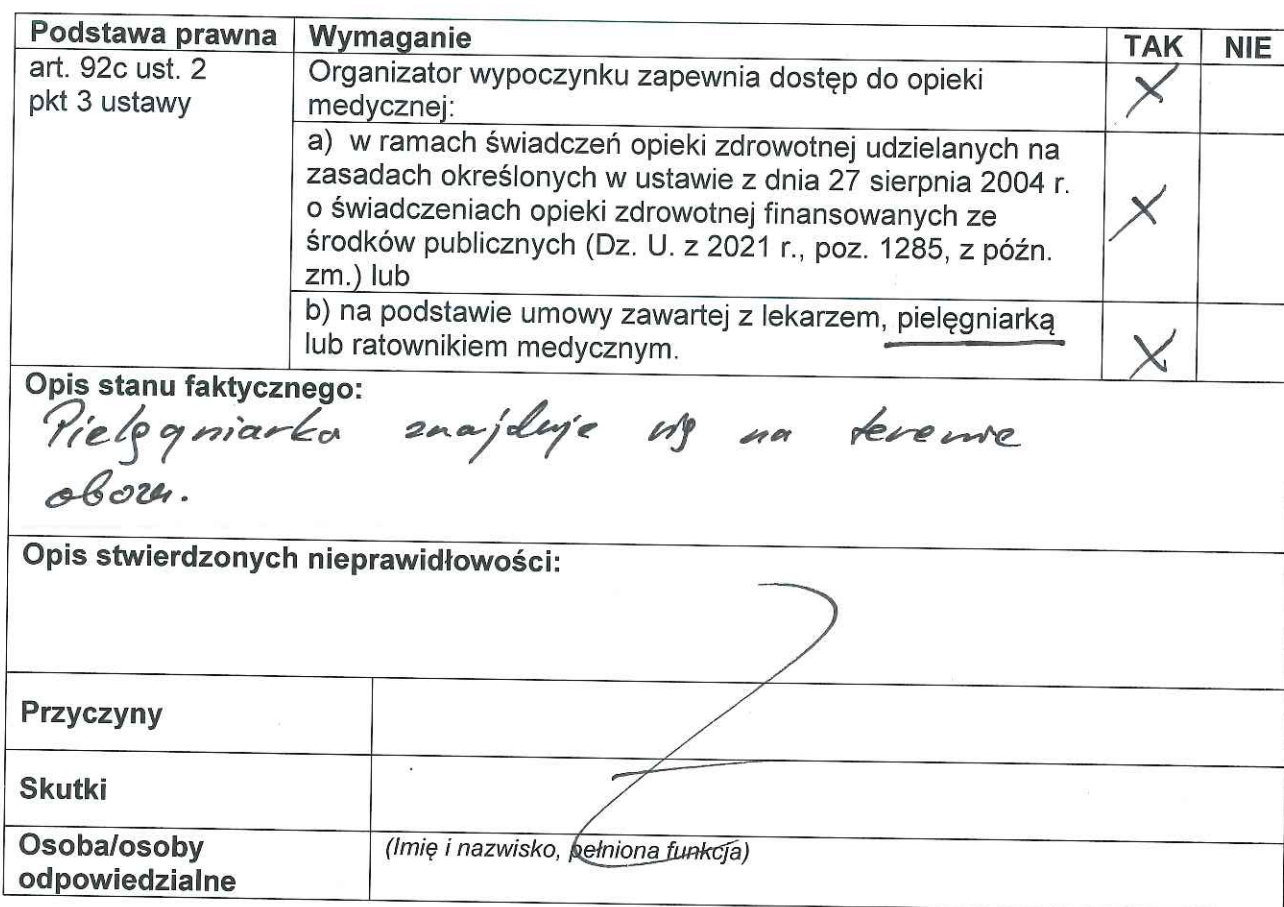 Podstawa prawna Wymaganie TAK NIE
art. 92c ust. 2
pkt 3 ustawy
Organizator wypoczynku zapewnia dostęp do opieki
medycznej: X
a) w ramach świadczeń opieki zdrowotnej udzielanych na
zasadach określonych w ustawie z dnia 27 sierpnia 2004 r.
o świadczeniach opieki zdrowotnej finansowanych ze X
środków publicznych (Dz. U. z 2021 r., poz. 1285, z późn.
zm.) lub
b) na podstawie umowy zawartej z lekarzem, pielęgniarką
lub ratownikiem medycznym. X
Opis stanu faktycznego:
Pielęgniarka znajduje się na terenie
obozu.
Opis stwierdzonych nieprawidłowości:
Przyczyny
Skutki
Osoba/osoby
odpowiedzialne
(Imię i nazwisko, pełniona funkcja)